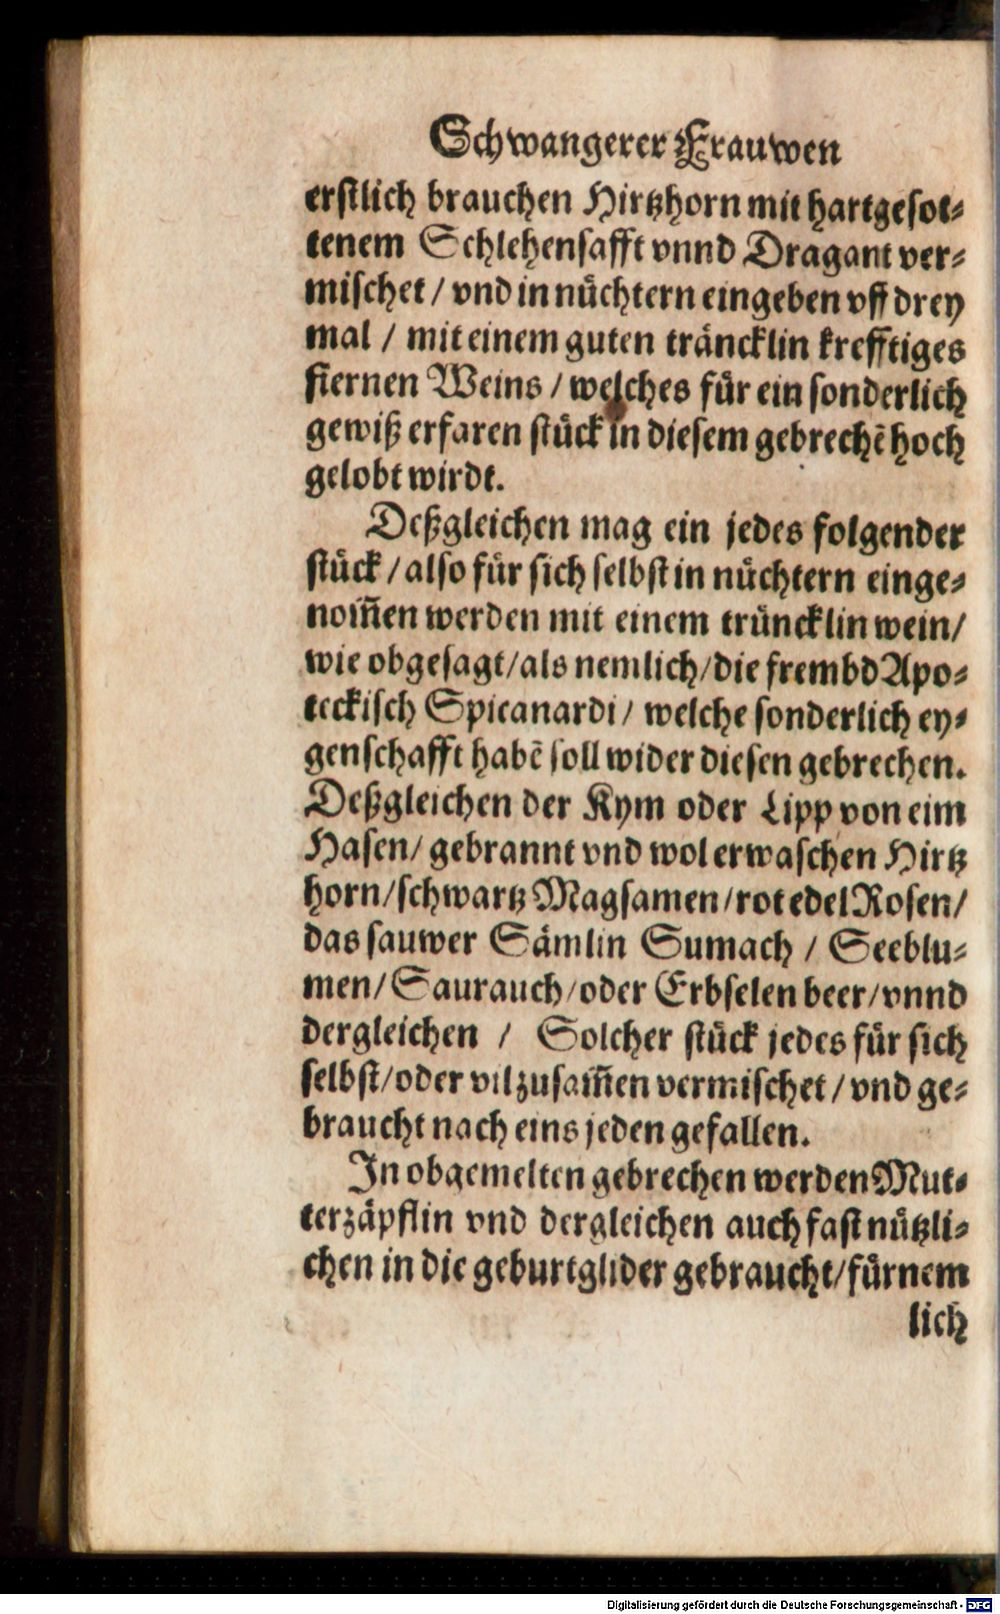 Schwangerer Frauwen
erstlich brauchen Hirtzhorn mit hartgesot-
tenem Schlehensafft vnnd Dragant ver-
mischet / vnd in nüchtern eingeben vff drey
mal / mit einem guten träncklin krefftiges
fiernen Weins / welches für ein sonderlich
gewiß erfaren stück in diesem gebrechẽ hoch
gelobt wirdt.
Deßgleichen mag ein jedes folgender
stück / also für sich selbst in nüchtern einge-
nom̃en werden mit einem trüncklin wein/
wie obgesagt/als nemlich/die frembd Apo-
teckisch Spicanardi / welche sonderlich ey-
genschafft habẽ soll wider diesen gebrechen.
Deßgleichen der Kym oder Lipp von eim
Hasen/ gebrannt vnd wol erwaschen Hirtz
horn/schwartz Magsamen/rot edel Rosen/
das sauwer Sämlin Sumach / Seeblu-
men/Saurauch/oder Erbselen beer/vnnd
dergleichen / Solcher stück jedes für sich
selbst/oder vil zusam̃en vermischet / vnd ge-
braucht nach eins jeden gefallen.
In obgemelten gebrechen werden Mut-
terzäpflin vnd dergleichen auch fast nützli-
chen in die geburtglider gebraucht/fürnem
lich
Digitalisierung gefördert durch die Deutsche Forschungsgemeinschaft - DFG